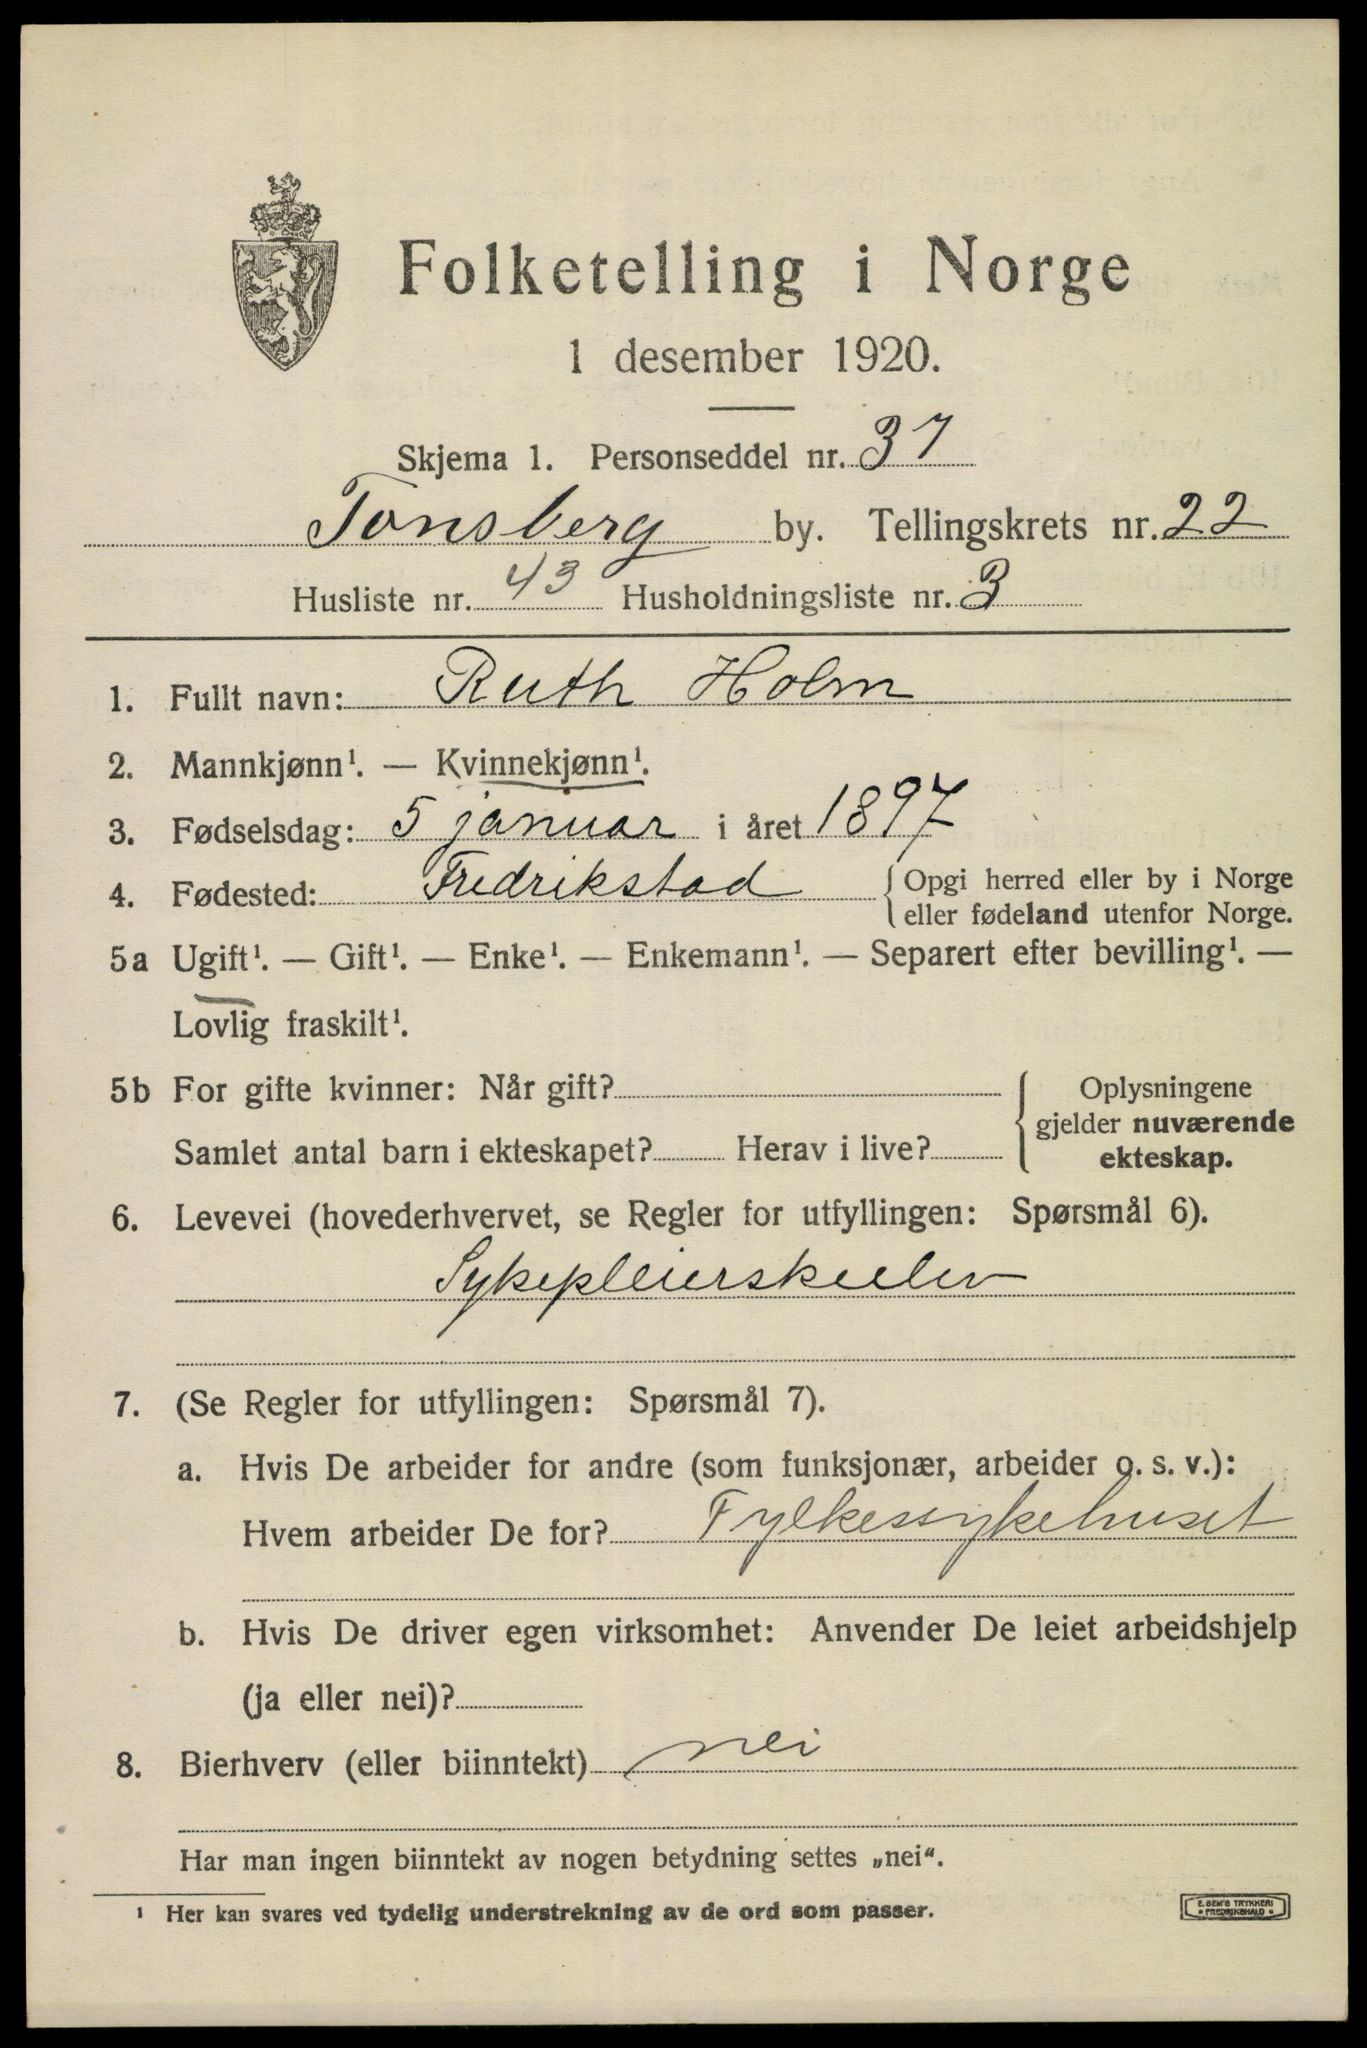 Folketelling i Norge
1 desember 1920.
Skjema 1. Personseddel nr. 37
Tønsberg by. Tellingskrets nr. 22
Husliste nr. 43 Husholdningsliste nr. 3
1. Fullt navn: Ruth Holm
2. Mannkjønn¹. — Kvinnekjønn¹.
3. Fødselsdag: 5 januar i året 1897
4. Fødested: Fredrikstad { Opgi herred eller by i Norge
eller fødeland utenfor Norge.
5a Ugift¹. — Gift¹. — Enke¹. — Enkemann¹. — Separert efter bevilling¹. —
Lovlig fraskilt¹.
5b For gifte kvinner: Når gift?
Samlet antal barn i ekteskapet? Herav i live?
Oplysningene
gjelder nuværende
ekteskap.
6. Levevei (hovederhvervet, se Regler for utfyllingen: Spørsmål 6).
Sykepleierskeelev
7. (Se Regler for utfyllingen: Spørsmål 7).
a. Hvis De arbeider for andre (som funksjonær, arbeider o. s. v.):
Hvem arbeider De for? Fylkessykehuset
b. Hvis De driver egen virksomhet: Anvender De leiet arbeidshjelp
(ja eller nei)?
8. Bierhverv (eller biinntekt) nei
Har man ingen biinntekt av nogen betydning settes „nei“.
¹ Her kan svares ved tydelig understrekning av de ord som passer.
E. SEM'S TRYKKERI
• FREDRIKSHALD •